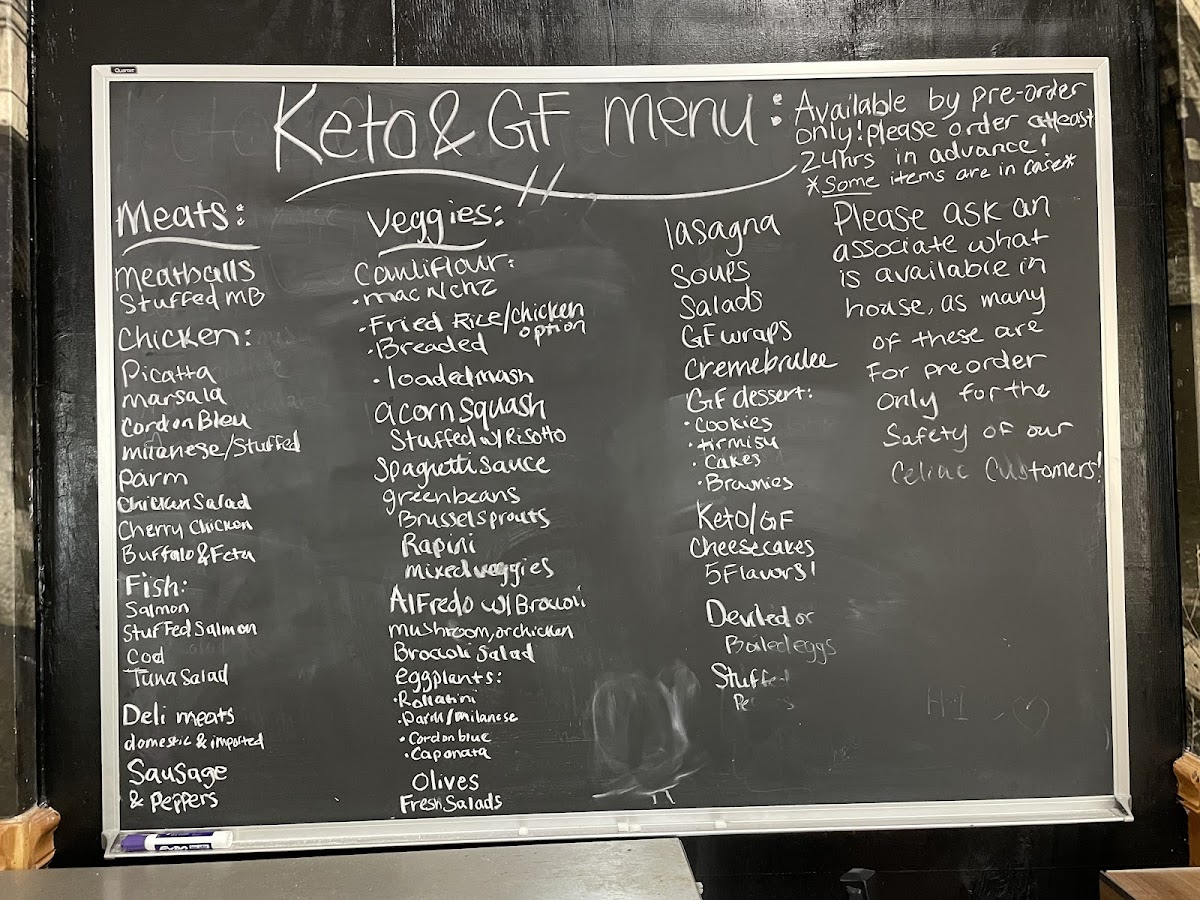 Quartet
Keto & GF menu:
Available by pre-order
only! please order atleast
24hrs in advance!
*Some items are in case*
Meats:
meatballs
Stuffed MB
Chicken:
Picatta
marsala
Cordon Bleu
milanese/Stuffed
parm
Chicken Salad
Cherry Chicken
Buffalo & Feta
Fish:
Salmon
Stuffed Salmon
Cod
Tuna Salad
Deli meats
domestic & imported
Sausage
& Peppers
Veggies:
Cauliflour:
• mac N chz
• Fried Rice/chicken
option
• Breaded
• loaded mash
acorn Squash
Stuffed w/ Risotto
Spaghetti Sauce
green beans
Brussel sprouts
Rapini
mixed veggies
Alfredo w/ Brocoli
mushroom, or chicken
Broccoli Salad
eggplants:
• Rollatini
• Parm/milanese
• Cordon blue
• Caponata
Olives
Fresh Salads
lasagna
Soups
Salads
GF wraps
Cremebrulee
GF dessert:
• Cookies
• tirmisu
• Cakes
• Brownies
Keto/GF
Cheesecakes
5 Flavors!
Deviled or
Boiled eggs
Stuffed
Please ask an
associate what
is available in
house, as many
of these are
For preorder
only for the
Safety of our
Celiac Customers!
EXPO